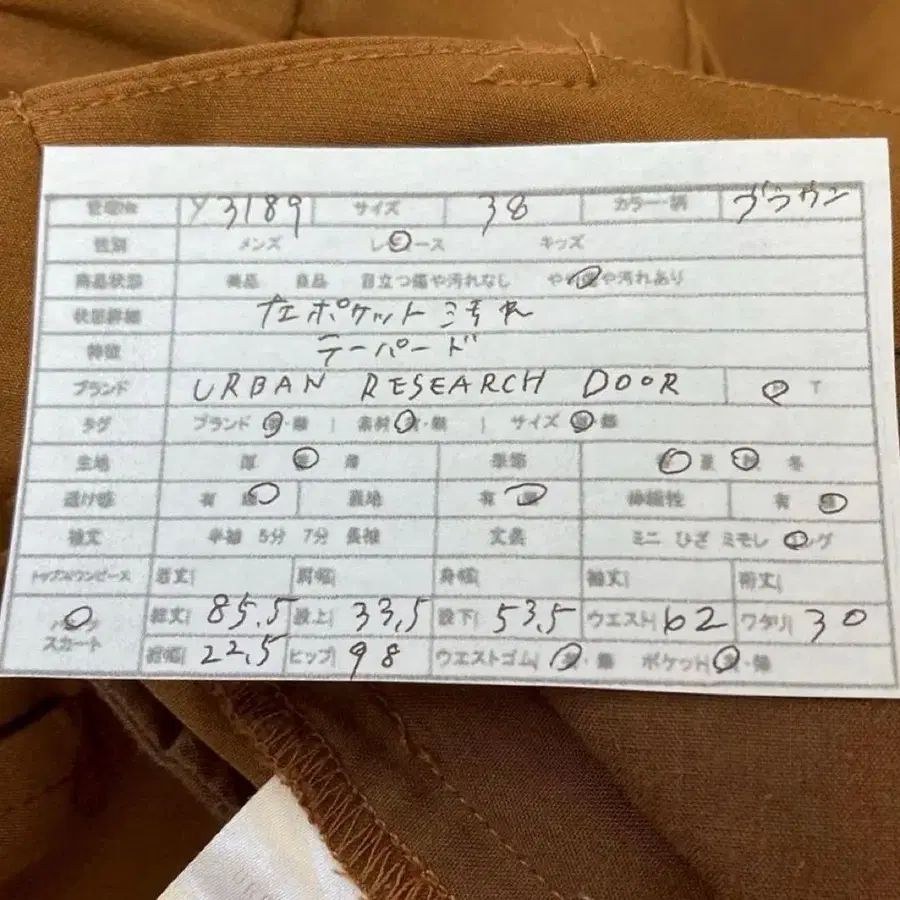 管理No Y3189 サイズ 38 カラー・柄 ブラウン
性別 メンズ レディース キッズ
商品状態 美品 良品 目立つ傷や汚れなし やや傷や汚れあり
状態詳細 左ポケット 汚れ
特徴 テーパード
ブランド URBAN RESEARCH DOOR T
タグ ブランド 有・無 | 素材 有・無 | サイズ 有・無
生地 厚 普 薄 季節 春 夏 秋 冬
透け感 有 無 裏地 有 無 伸縮性 有 無
袖丈 半袖 5分 7分 長袖 丈長 ミニ ひざ ミモレ ロング
トップス/ワンピース 着丈| 肩幅| 身幅| 袖丈| 裄丈|
パンツ 総丈| 85.5 股上| 33.5 股下| 53.5 ウエスト| 62 ワタリ| 30
スカート 裾幅| 22.5 ヒップ| 98 ウエストゴム| 有・無 ポケット| 有・無